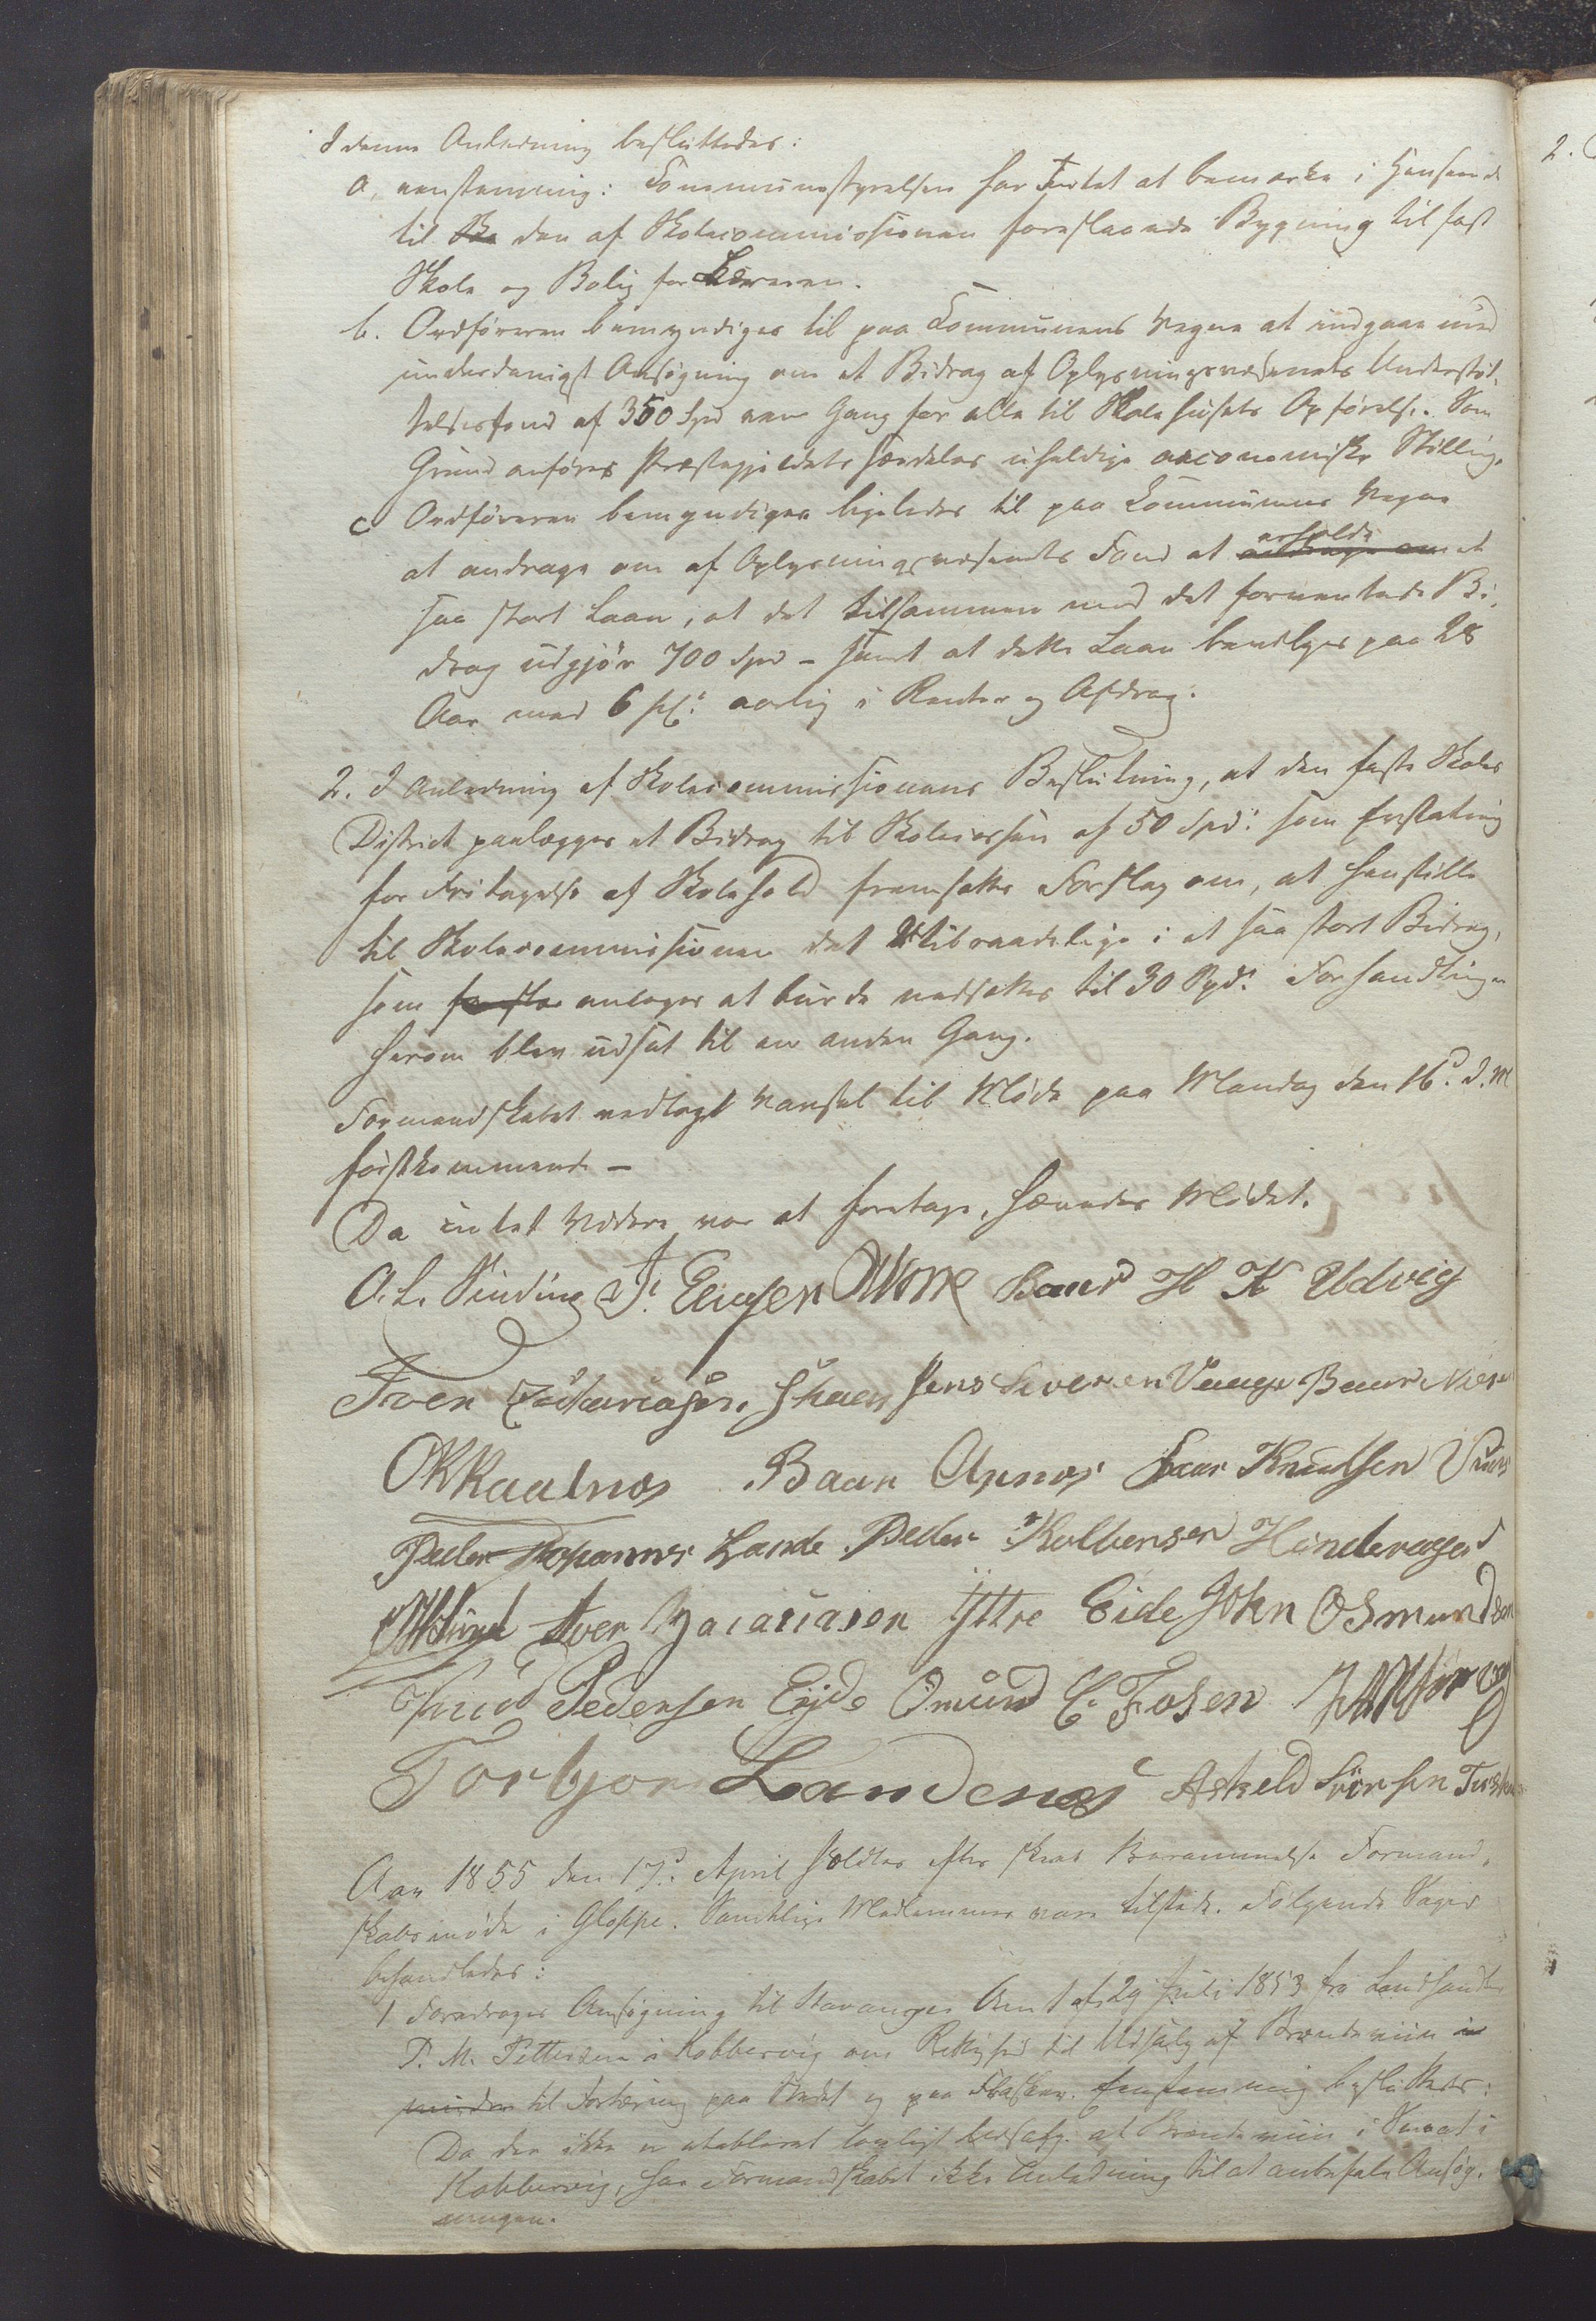 I denne Anledning besluttedes:
a, eenstemmig: Communestyrelsen har Intet at bemærke i Henseende
til Sko den af Skolecommissionen foreslaaede Bygning til fast
Skole og Bolig for Læreren.
b. Ordføreren bemyndiges til paa Communens Vegne at indgaae med
underdanigst Ansøgning om et Bidrag af Oplysningsvæsenets Understøt-
telsesfond af 350 Spd een Gang for alle til Skolehusets Opførelse. Som
Grund anføres Præstegjeldets særdeles uheldige oeconomiske Stilling.
c Ordføreren bemyndiges ligeledes til paa Communens Vegne
at andrage om af Oplysningsvæsenets Fond at andrage om erholde et
saa stort Laan, at det tilsammen med det forventede Bi-
drag udgjør 700 Spd - samt at dette Laan bevilges paa 28
Aar med 6 pC: aarlig i Renter og Afdrag.
2. I Anledning af Skolecommissionens Beslutning, at den faste Skoles
District paalægges et Bidrag til Skolecassen af 50 Spd: som Erstatning
for Fritagelse af Skolehold fremsattes Forslag om, at henstille
til Skolecommissionen det Utilraadelige i et saa stort Bidrag,
som antages at burde nedsættes til 30 Spd: Forhandlingen
herom blev udsat til en anden Gang.
Formandskabet vedtoges Varsel til Møde paa Mandag den 16d. d. M
førstkommende -
Da intet Videre var at foretage, hævedes Mødet.
A. L. Sinding H K Udvig
Iver Zakariasen Jens Iversen Vaage
OKKaalnæs Baar Apnæs Knudsen
Peder Johannes Lande Peder Kolbensen Hinderager
Iver Zacariasen Yttre Eide John Osmundsen
Knud Pedersen Eyde Omund E. Fosen
Torbjør Landenæs Askeld
Aar 1855 den 17d. April holdtes efter skeet Berammelse Formand-
skabsmøde i Gloppe. Samtlige Medlemmer vare tilstede. Følgende Sager
behandledes:
1 Foredroges Ansøgning til Stavanger Amt af 29 Juli 1853 fra Landhandler
P. M. Pettersen i Kobbervig om Rettighed til Udsalg af Brændeviin i
mindre til Fortæring paa Stedet og paa Flasker. Eenstemmig besluttedes:
Da der ikke er etableret lovligt Udsalg af Brændeviin i Smaat i
Kobbervig, har Formandskabet ikke Anledning til at anbefale Ansøg-
ningen.
2.